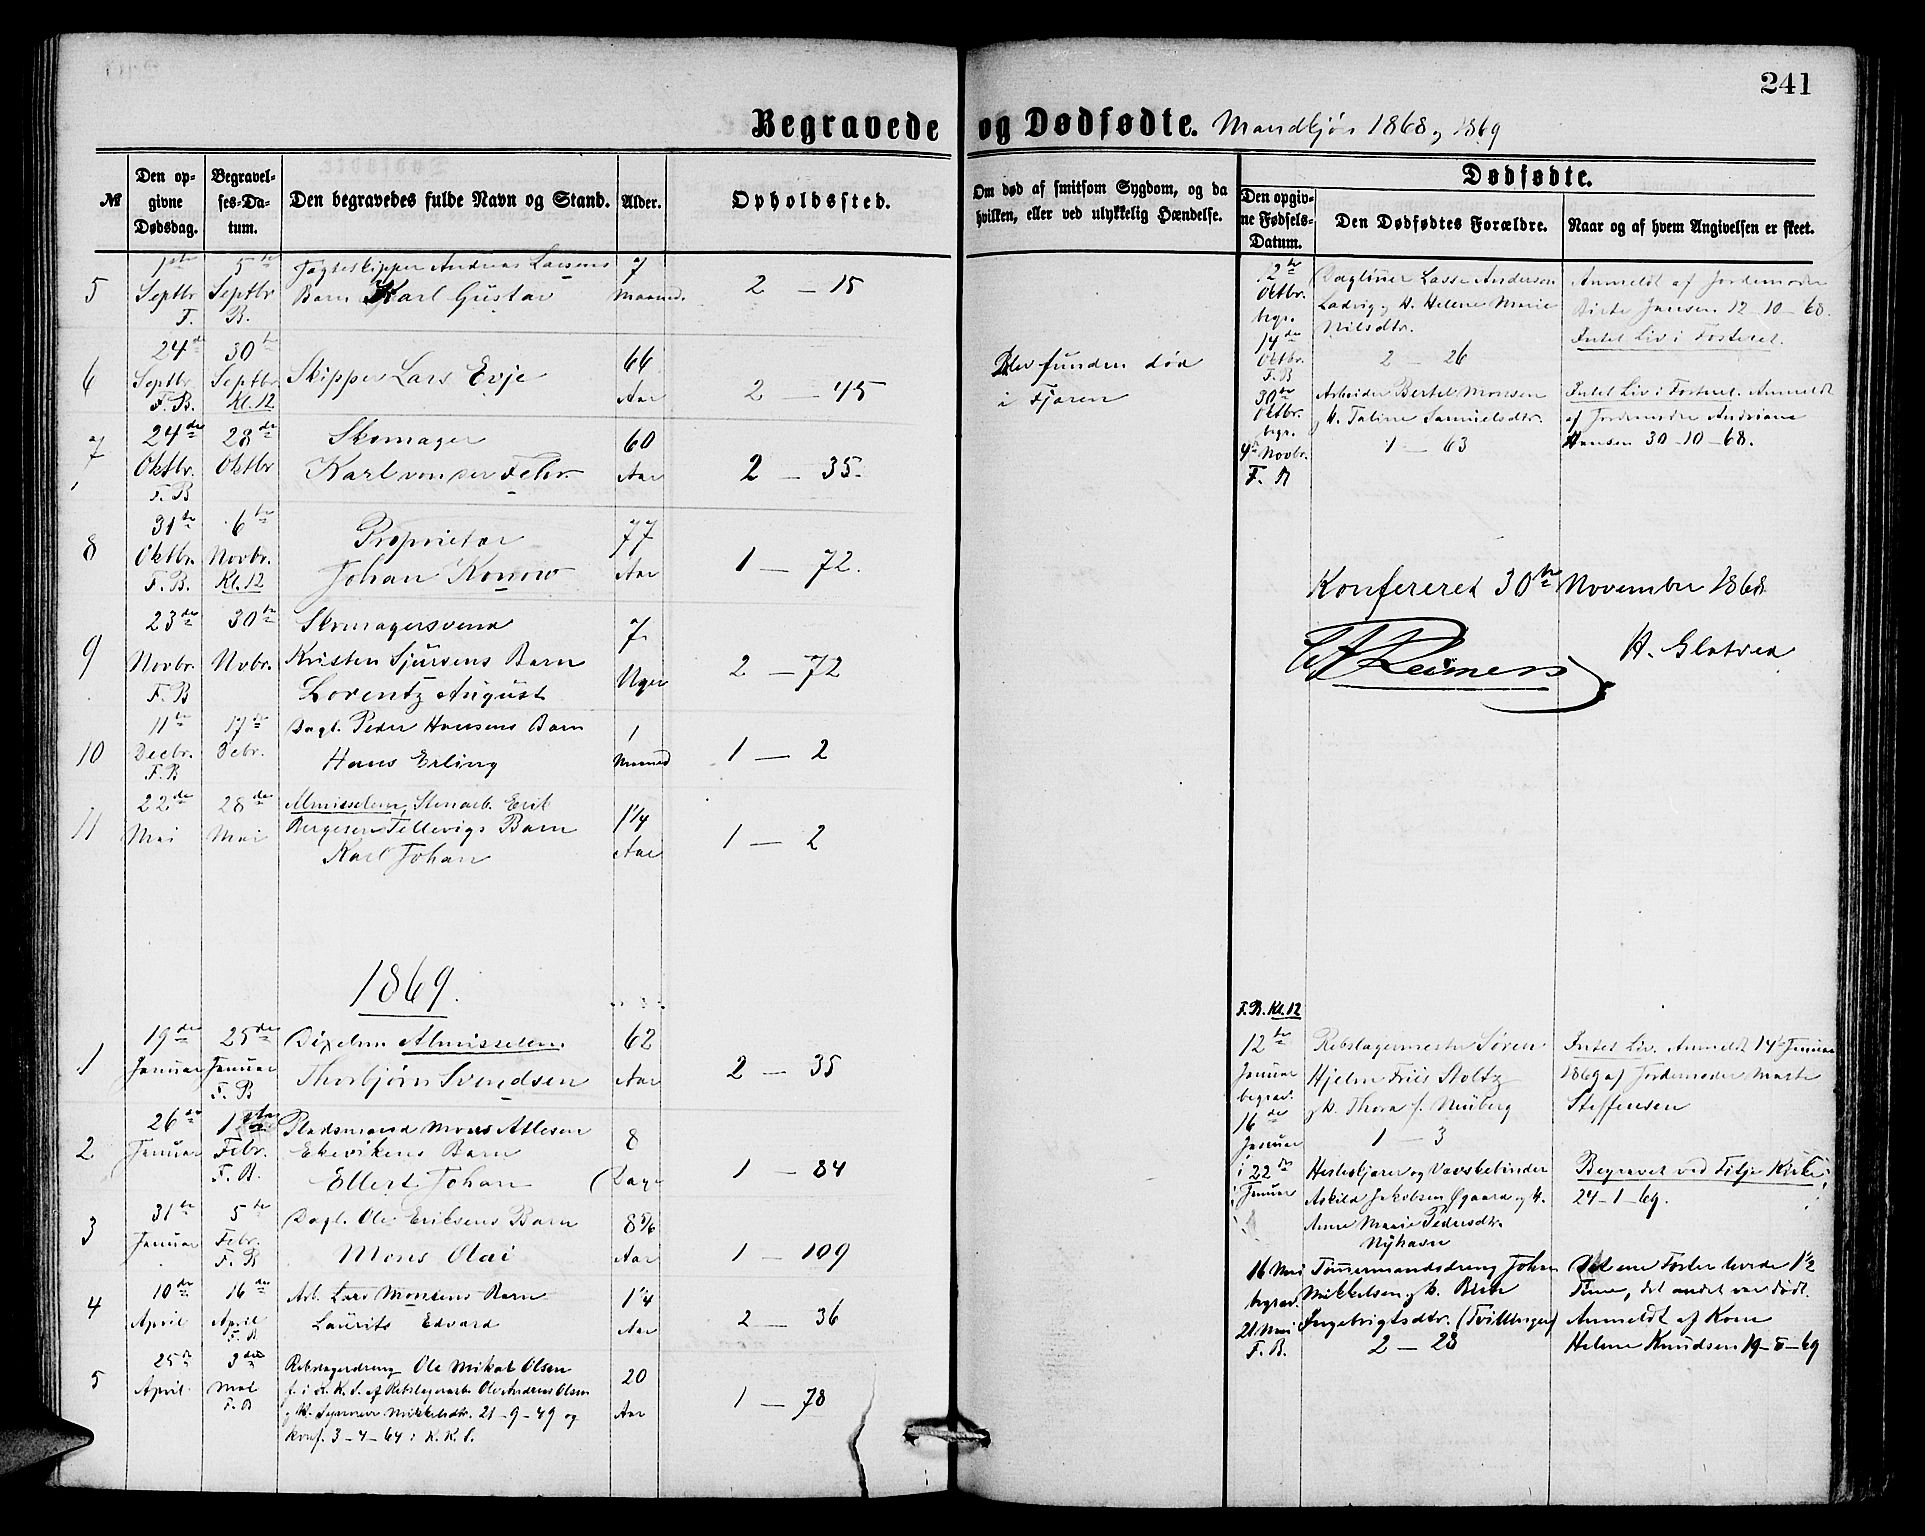 241
Begravede og Dødfødte. Mandkjøn 1868 og 1869
№
Den op-
givne
Dødsdag.
Begravel-
ses-Da-
tum.
Den begravedes fulde Navn og Stand.
Alder.
Opholdssted.
Om død af smitsom Sygdom, og da
hvilken, eller ved ulykkelig Hændelse.
Dødfødte.
Den opgiv-
ne Fødsels-
Datum.
Den Dødfødtes Forældre.
Naar og af hvem Angivelsen er skeet.
5
1ste
Septbr
F.
5te
Septbr
B.
Jagteskipper Andreas Larsens
Barn Karl Gustav
7
Maaned.
2 – 15
6
24de
Septbr.
F. B.
30te
Septbr.
Kl. 12
Skipper Lars Evje
66
Aar
2 – 45
Blev funden død
i Fjøren
7
24de
Oktbr.
F. B
28de
Oktbr
Skomager
Karl von der Fehr.
60
Aar
2 – 35.
8
31te
Oktbr.
F. B.
6te
Novbr.
Kl. 12
Proprietær
Johan Konow
77
Aar
1 – 72.
9
23de
Novbr.
F. B
30te
Novbr.
Skomagersvend
Kristen Sjursens Barn
Lorentz August
7
Uger
2 – 72
10
11te
Decbr.
F. B
17de
Debr.
Dagl. Peder Hansens Barn
Hans Erling
1
Maaned
1 – 2
11
22de
Mai
28de
Mai
Almisselem, Stenarb. Erik
Bergesen Tellevigs Barn
Karl Johan
1 1/4
Aar
1 – 2
1869.
1
19de
Januar
25de
Januar
F. B
Almisselem
Thorbjørn Svendsen
62
Aar
2 – 35
2
26de
Januar
1ste
Febr.
F. B.
Pladsmand Mons Atlesen
Ekevikens Barn
Ellert Johan
8
Dage
1 – 84
3
31te
Januar
5te
Febr.
F. B
Dagl. Ole Eriksens Barn
Mons Olai
8 5/6
Aar
1 – 109
4
10de
April
16de
April
F. B
Arb. Lars Monsens Barn
Laurits Edvard
1 1/4
Aar
2 – 36
5
25de
April
3die
Mai
F. B
Rebslagerdreng Ole Mikal Olsen
f. i K. S. af Rebslagerarb. Ole Andreas Olsen
og H. Mikkelsdtr. 21–9–49 og
konf. 3–4–64 i K. K. S.
20
Aar
1 – 78
2den
Oktbr.
begr.
14de
Oktbr.
F. B
Dagløner Lasse Andersen
Ladvig og H. Helene Marie
Nilsdtr.
2 – 26
Anmeldt af Jordemoder
Jansen 12–10–68.
Intet Liv i Fosteret.
30te
Oktbr.
begr.
4de Novbr.
F. B
Arbeider Bertel Monsen
og H. Taline Samuelsdtr.
1 – 63
Intet Liv i Fosteret. Anmeldt
af Jordemoder Andriane
Hansen 30–10–68.
Konfereret 30te November 1868
Reimers
H. Glatved
F. B. Kl. 12
12te
Januar
begrav.
16de
Januar
Rebslagermester Søren
Hjelm Friis Stoltz
og H. Thora f. Neuberg
1 – 3
Intet Liv. Anmeldt 14de Januar
1869 af Jordemoder Marte
Steffensen
22de
Januar
Hesteskjærer og Vævskebinder
Askild Jakobsen Øgaard og H.
Anne Marie Pedersdtr.
Nyhavn
Begravet ved Fitje Kirke
24–1–69.
16 Mai
begrav.
21 Mai
F. B.
Tømmermandsdreng Johan
Mikkelsen og H.
Ingebrigtsdtr. (Tvillinger)
2 – 28
Det ene Foster levede 1½
Time, det andet var dødt.
Anmeldt af Kone
Helene Knudsen 19–5–69